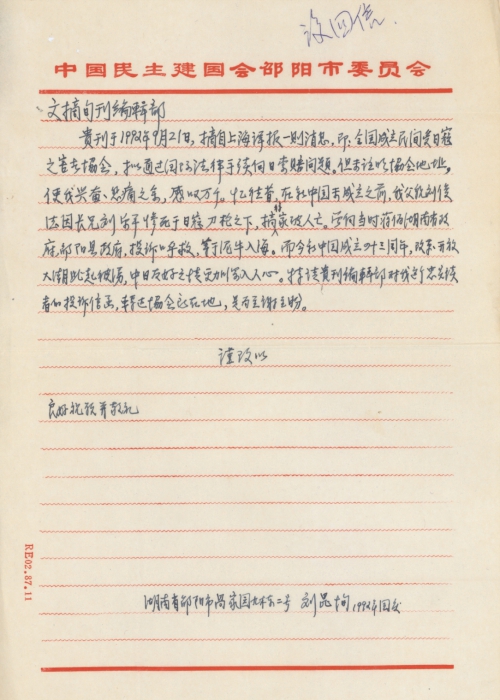 没回信
中国民主建国会邵阳市委员会
文摘旬刊编辑部
贵刊于1992年9月21日，摘自上海译报一则消息，即：全国成立民间受日寇
之害者协会，拟通过国际法律手续向日索赔问题。但未注明协会地址。
使我兴奋、悲痛之余，感慨万千。忆往昔，在新中国未成立之前，我父致刘俊
法因长兄刘 惨死于日寇刀枪之下，搞家破人亡。曾向当时蒋伪湖南省政
府，邵阳县政府，投诉以呼救，等于泥牛入海。而今新中国成立四十三周年，改革开放
大潮 起彼涌，中日友好之情更加深入人心。特请贵刊编辑部对我这个忠实读
者的投诉信函，转至协会所在地，是否至谢至盼。
谨致以
良好祝愿并敬礼
湖南省邵阳市 家园 二号 刘 1992年国庆
RE02.87.11